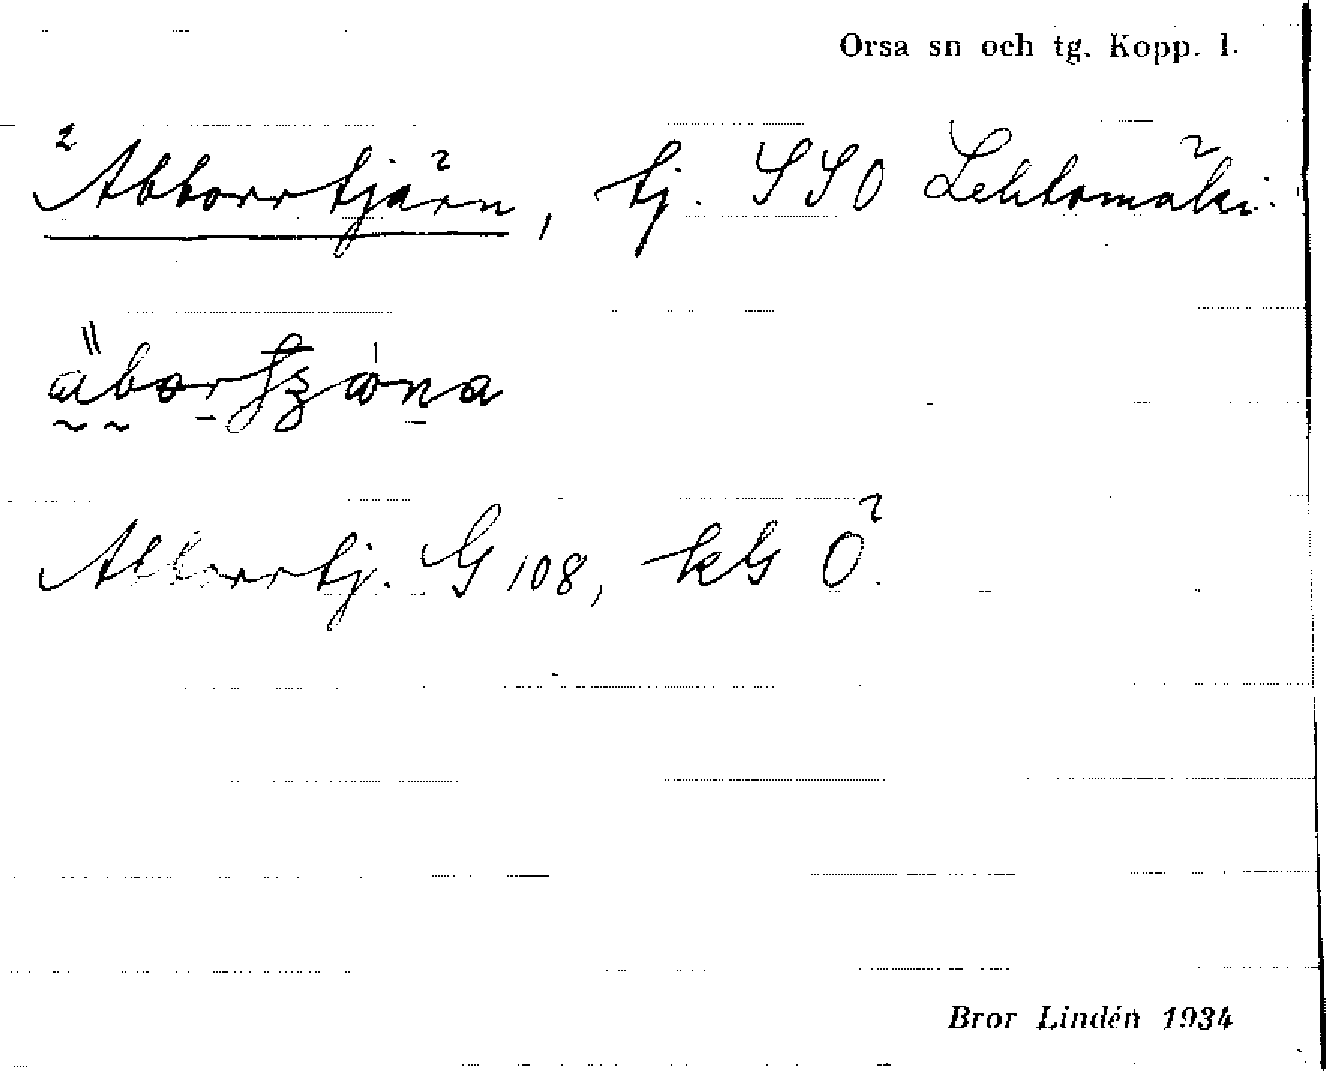 Orsa sn och tg. Kopp. l.
2 Abborrtjärn, tj. SSO Lehtomäki.
Abborrtj. G 108, kG Ö.
Bror Lindén 1934